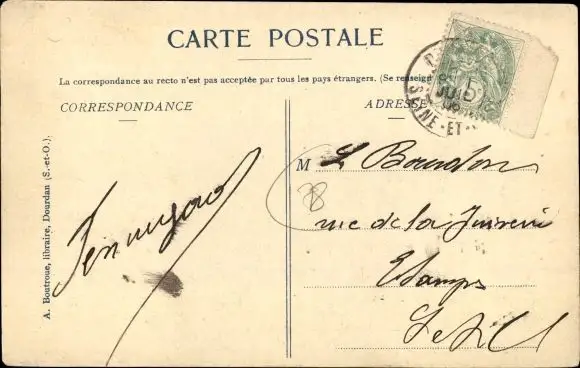 CARTE POSTALE
La correspondance au recto n'est pas acceptée par tous les pays étrangers. (Se renseign
CORRESPONDANCE
ADRESSE
5c
JUIN
SEINE-ET-
A. Boutroue, libraire, Dourdan (S.-et-O.)
M L Bourdon
8
rue de la Juiverie
Etampes
S et O